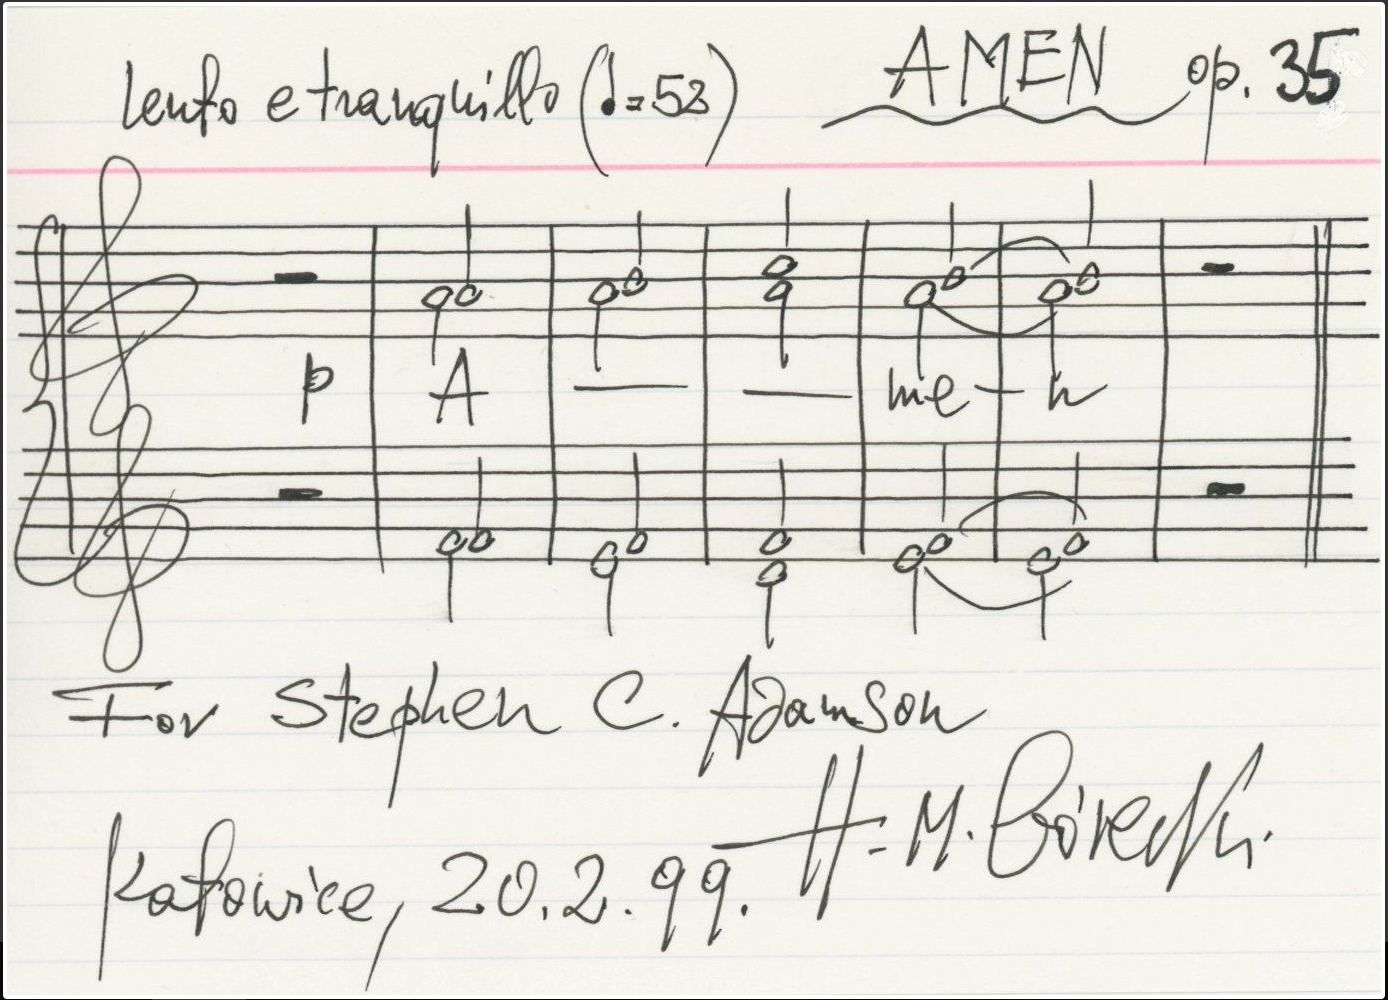 Lento e tranquillo (♩=52) AMEN op. 35
p A — — me-n
For Stephen C. Adamson
Katowice, 20.2.99. H.M. Górecki